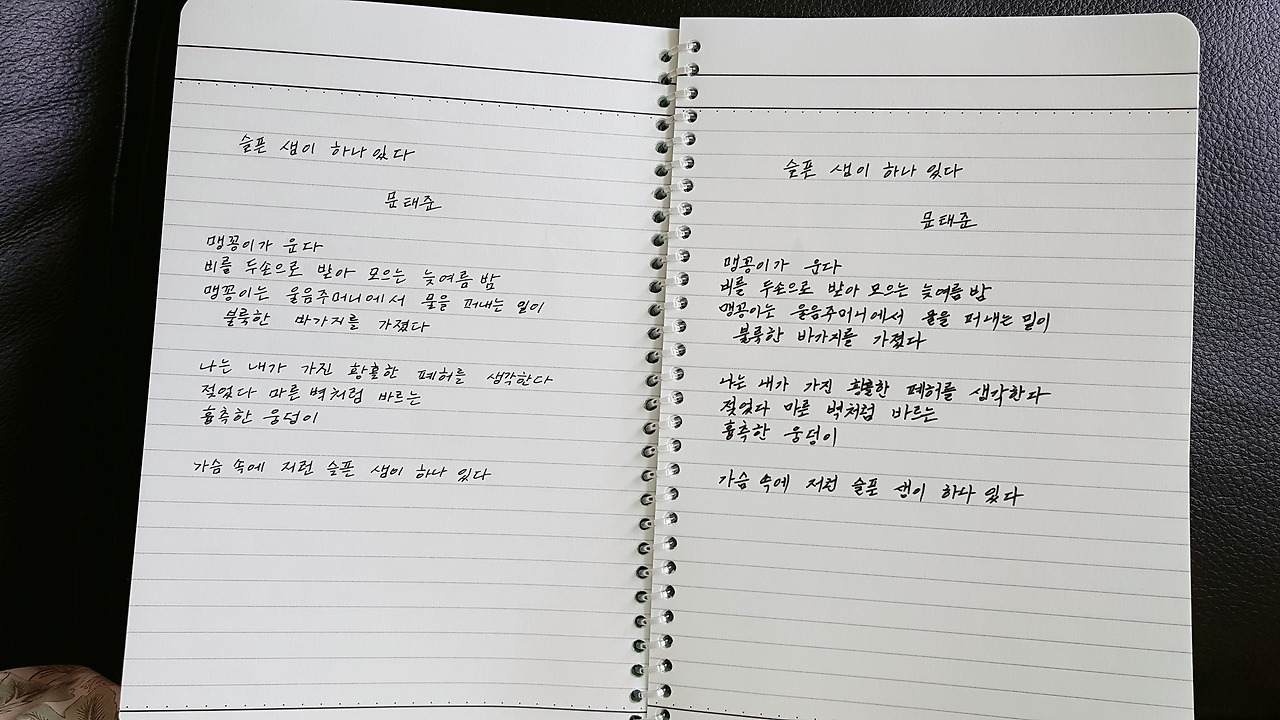 슬픈 샘이 하나 있다
문태준
맹꽁이가 운다
비를 두손으로 받아 모으는 늦여름 밤
맹꽁이는 울음주머니에서 물을 퍼내는 밑이
불룩한 바가지를 가졌다
나는 내가 가진 황홀한 폐허를 생각한다
젖었다 마른 벽처럼 바르는
흉측한 웅덩이
가슴 속에 저런 슬픈 샘이 하나 있다
슬픈 샘이 하나 있다
문태준
맹꽁이가 운다
비를 두손으로 받아 모으는 늦여름 밤
맹꽁이는 울음주머니에서 물을 퍼내는 밑이
불룩한 바가지를 가졌다
나는 내가 가진 황홀한 폐허를 생각한다
젖었다 마른 벽처럼 바르는
흉측한 웅덩이
가슴 속에 저런 슬픈 샘이 하나 있다